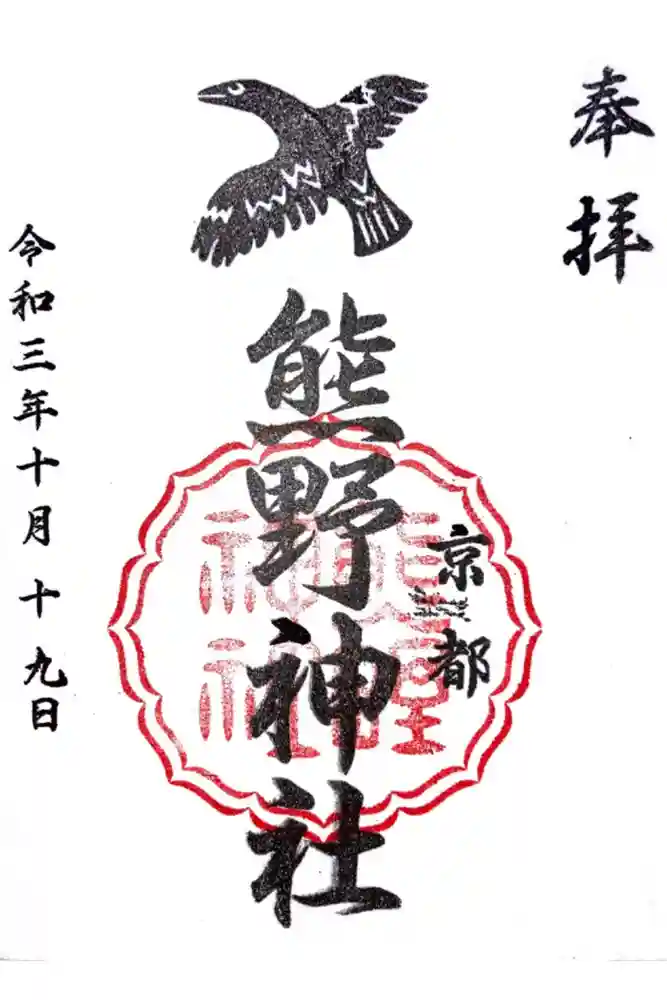 奉拝
京都
熊野神社
熊野
神社
令和三年十月十九日